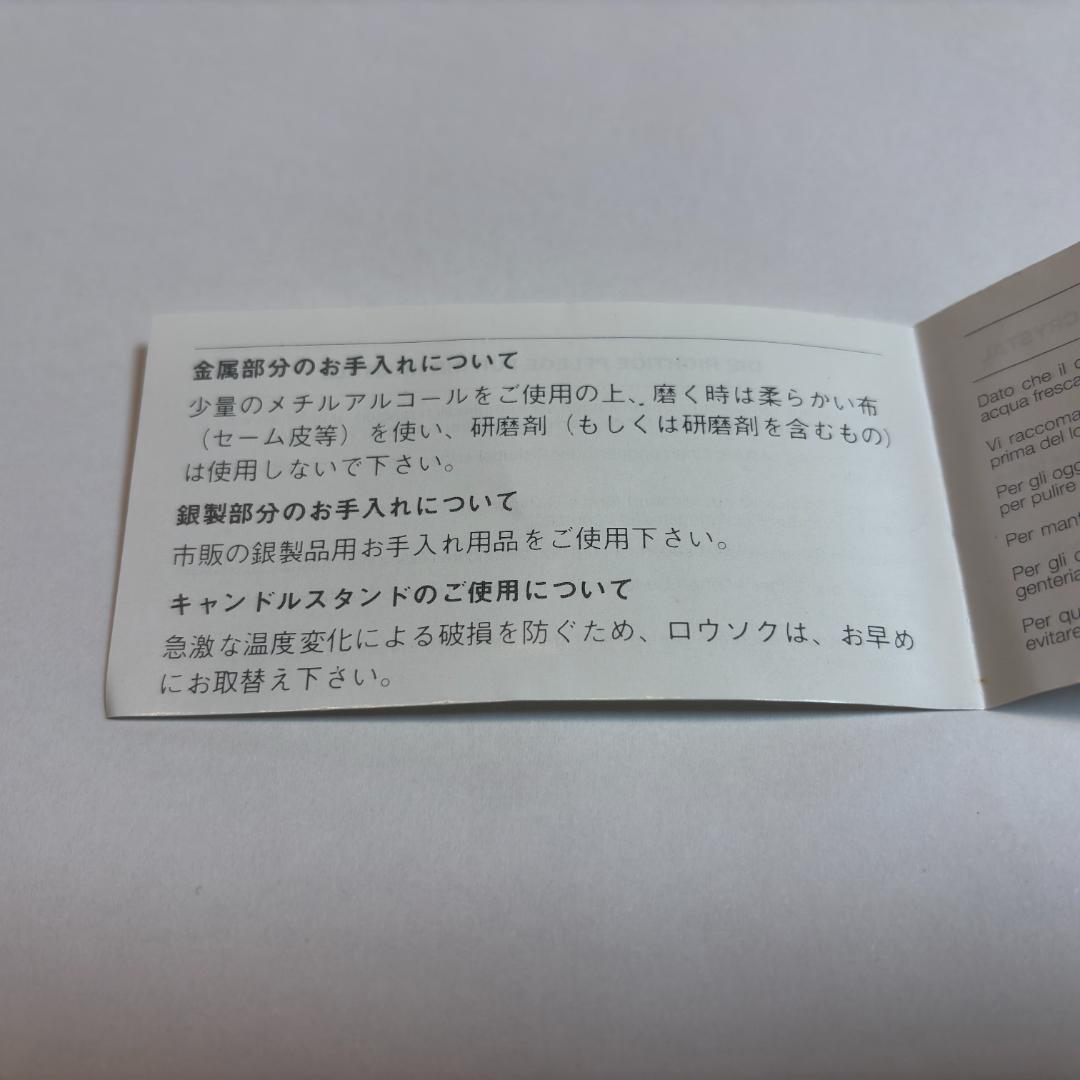 金属部分のお手入れについて
少量のメチルアルコールをご使用の上、磨く時は柔らかい布
(セーム皮等)を使い、研磨剤(もしくは研磨剤を含むもの)
は使用しないで下さい。
銀製部分のお手入れについて
市販の銀製品用お手入れ用品をご使用下さい。
キャンドルスタンドのご使用について
急激な温度変化による破損を防ぐため、ロウソクは、お早め
にお取替え下さい。
Dato che il
acqua fresca
Vi raccoma
prima del
Per gli ogg
per pulire
Per mant
Per gli
genteria
Per qu
evitare